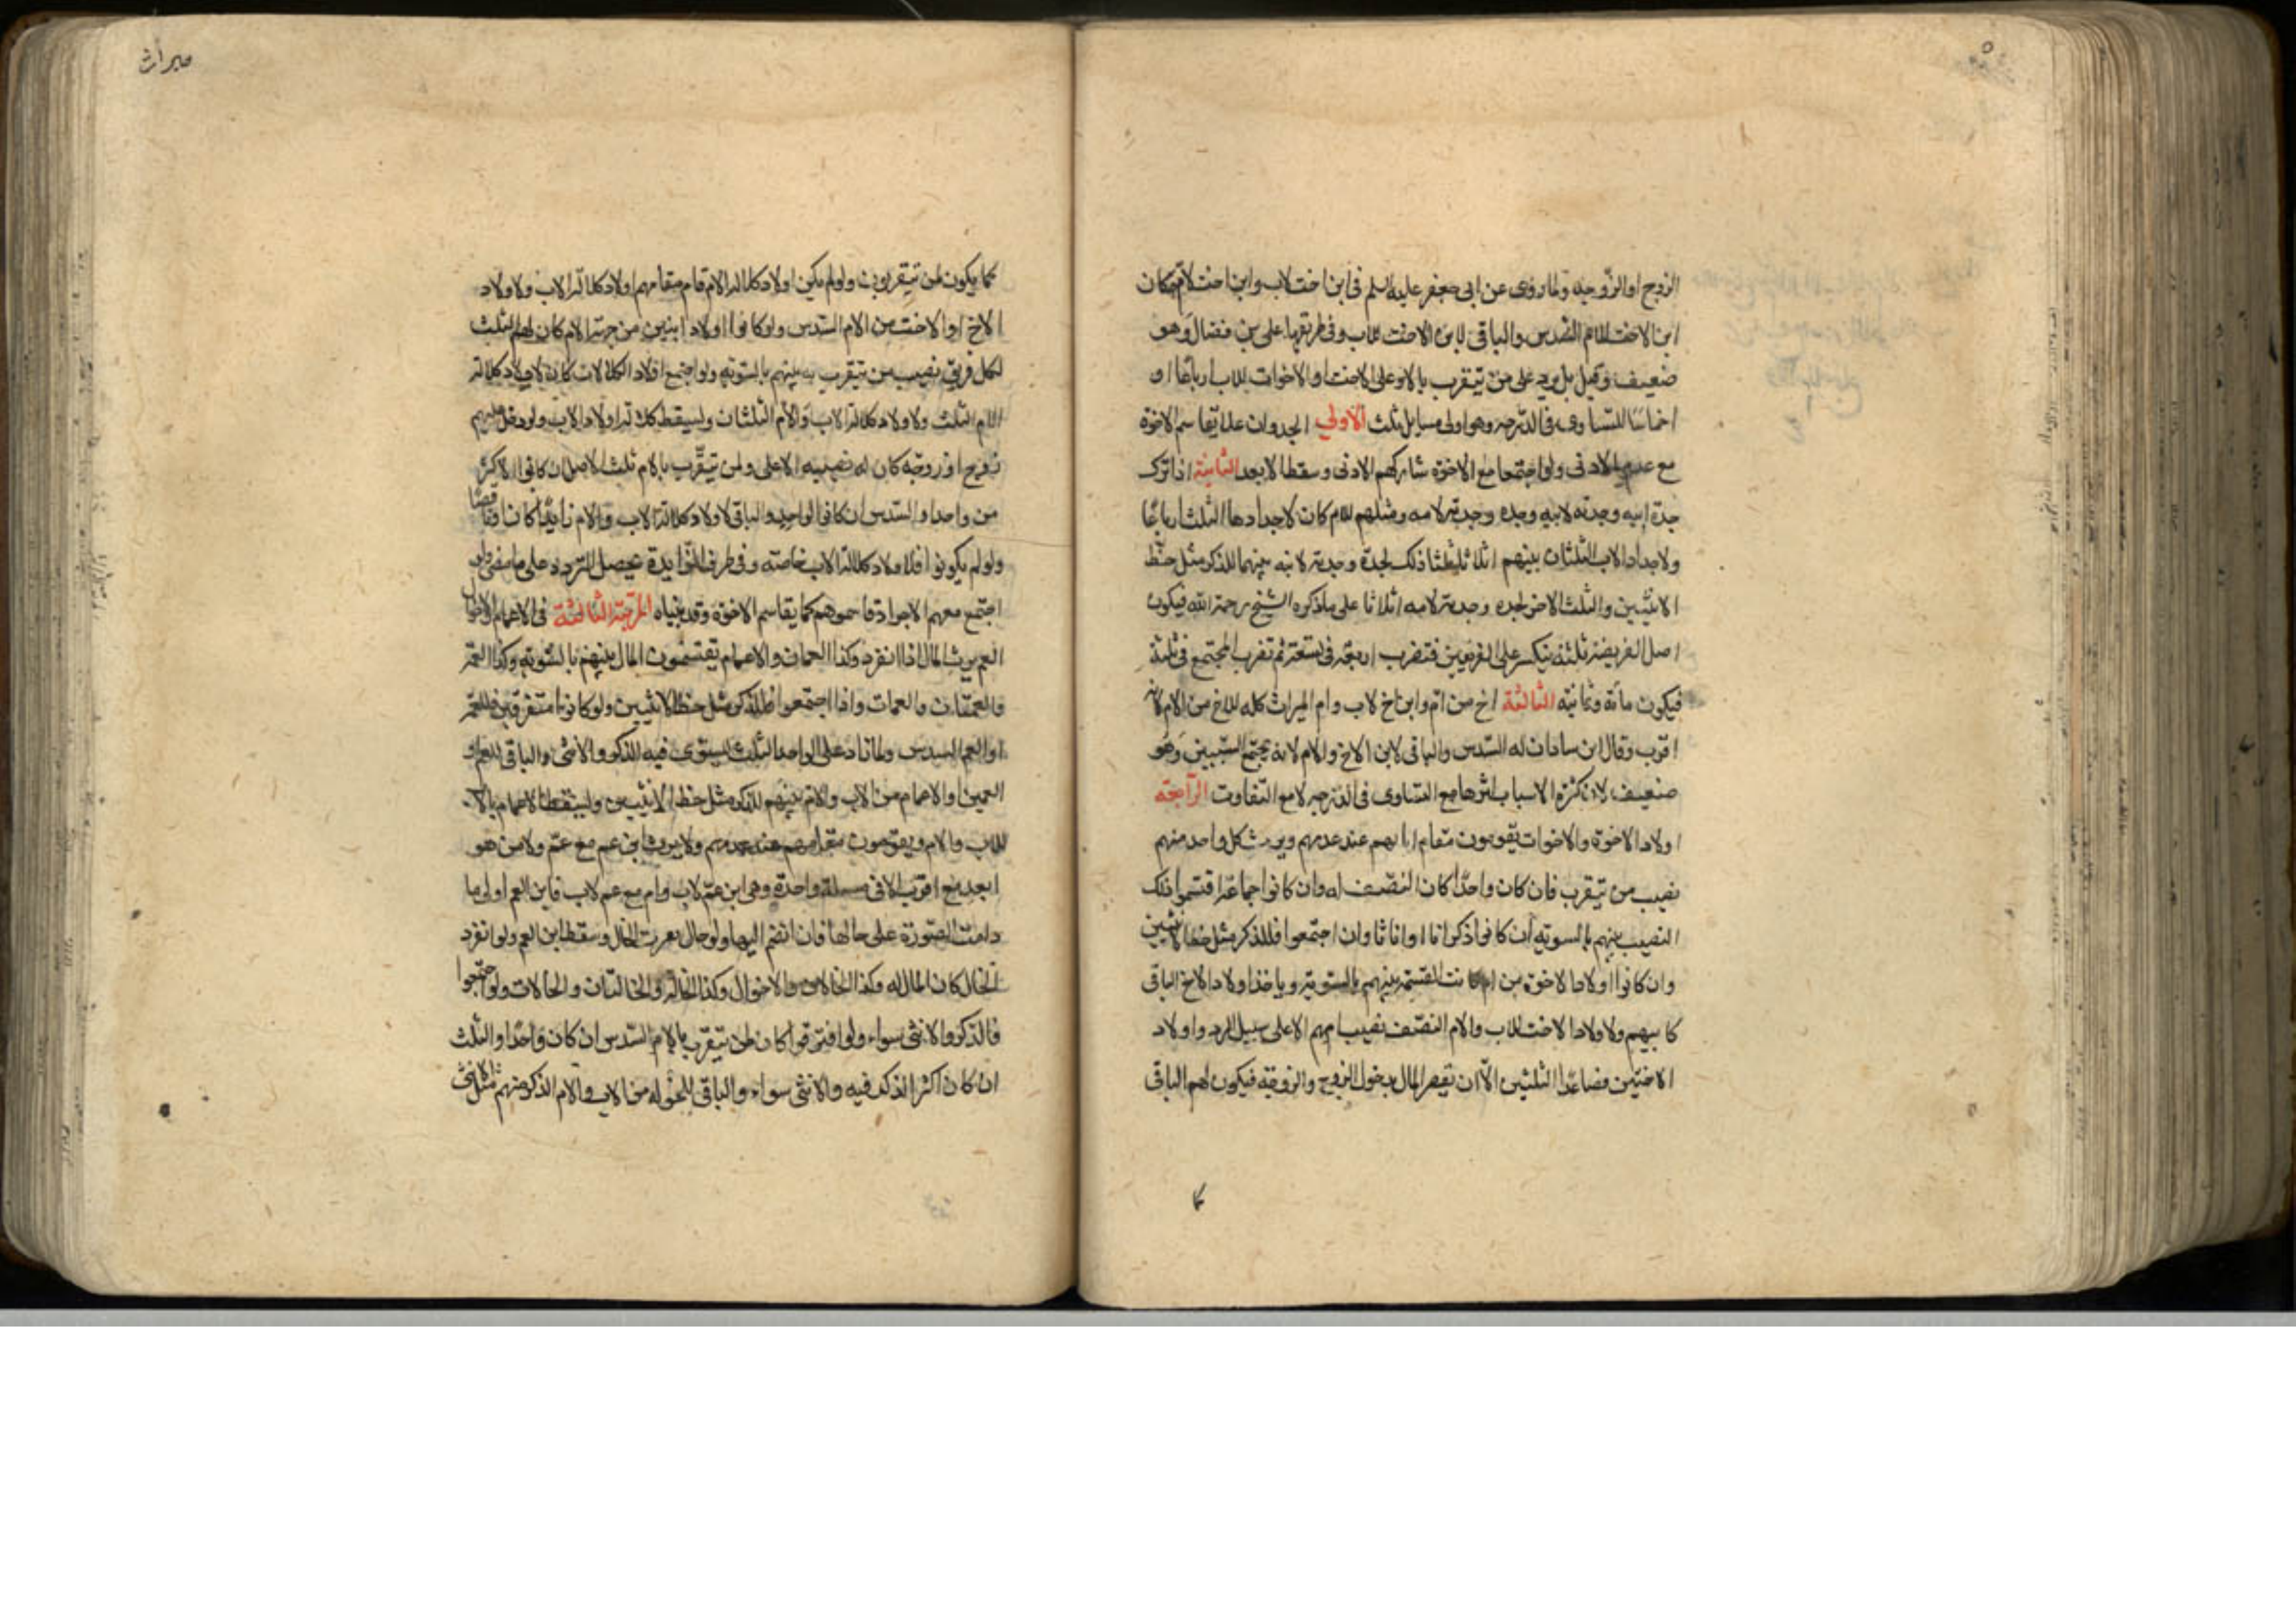 الزوج او الزوجة ولما روى عن ابى جعفر عليه السلم فى ابن اخت لاب وابن اخت لام كان
ابن الاخت للام السدس والباقى لابن الاخت للاب وفى طريقها على بن فضال وهو
ضعيف وقيل بل يرد على من يتقرب بالام وعلى الاخت او الاخوات للاب ارباعا او
اخماسا للتساوى فى الدرجه وهو اولى مسايل ثلث الاولى الجد وان علا يقاسم الاخوة
مع عدم الادنى ولو اجتمعا مع الاخوة شاركهم الادنى وسقط الابعد الثانية اذا ترك
جدة ابيه وجدته لابيه وجده وجدته لامه ومثلهم للام كان لاجدادها الثلث ارباعا
ولاجداد الاب الثلثان بينهم اثلاثا ثلثا ذلك لجدة وجدته لابيه بينهما للذكر مثل حظ
الانثيين والثلث الاخر لجده وجدته لامه اثلاثا على ما ذكره الشيخ رحمة الله فيكون
اصل الفريضة ثلثة ينكسر على الفريقين فتضرب اربعة فى تسعة ثم تضرب المجتمع فى ثلثة
فيكون مائة وثمانية الثالثة اخ من ام وابن اخ لاب وام الميراث كله للاخ من الام لانه
اقرب وقال ابن شاذان له السدس والباقى لابن الاخ والام لانه يجتمع السببين وهو
ضعيف لان كثرة الاسباب اثرها مع التساوى فى الدرجه لا مع التفاوت الرابعة
اولاد الاخوة والاخوات يقومون مقام ابائهم عند عدمهم ويرث كل واحد منهم
نصيب من يتقرب فان كان واحدا كان النصيب له وان كانوا جماعة اقتسموا ذلك
النصيب بينهم بالسوية ان كانوا ذكرانا او اناثا وان اجتمعوا فللذكر مثل حظ الانثيين
وان كانوا اولاد الاخوة من ام كانت القسمة بينهم بالسوية وياخذ اولاد الاخ الباقى
كابيهم ولاولاد الاخت للاب والام النصف نصيب امهم الا على سبيل الرد واولاد
الاختين فصاعدا الثلثين الا ان تقصر المال بدخول الزوج والزوجة فيكون لهم الباقى
كما
ميراث
كما يكون لمن يتقربون به ولو لم يكن اولاد كلالة الام قام مقامهم اولاد كلالة الاب ولاولاد
الاخ او الاخت من الام السدس ولو كانوا اولاد اثنين من جهة الام كان لهم الثلث
لكل فريق نصيب من يتقرب به بينهم بالسوية ولو اجتمع اولاد الكلالات كان لاولاد كلالة
الام الثلث ولاولاد كلالة الاب والام الثلثان ويسقط كلالة اولاد الاب ولو دخل عليهم
زوج او زوجة كان له نصيبه الاعلى ولمن يتقرب بالام ثلث الاصل ان كانوا لاكثر
من واحد او السدس ان كانوا لواحد والباقى لاولاد كلالة الاب والام زايدا كان او ناقصا
ولو لم يكونوا فلاولاد كلالة الاب خاصة وفى طرف الزايدة يحصل التردد على ما مضى ولو
اجتمع معهم الاجداد قاسموهم كما يقاسم الاخوة وقد بيناه المرتبة الثالثة فى الاعمام والاخوال
العم يرث المال اذا انفرد وكذا العمان والاعمام يقتسمون المال بينهم بالسوية وكذا العمة
والعمتان والعمات واذا اجتمعوا فللذكر مثل حظ الانثيين ولو كانوا متفرقين فللعمة
او العم السدس ولما زاد على الواحد الثلث يستوى فيه الذكر والانثى والباقى للعم او
العمين او الاعمام من الاب والام بينهم للذكر مثل حظ الانثيين ويسقط الاعمام بالا
للاب والام ويقومون مقامهم عند عدمهم ولا يرث ابن عم مع عم ولا من هو
ابعد مع اقرب الا فى مسئلة واحدة وهى ابن عم لاب وام مع عم لاب فابن العم اولى ما
دامت الصورة على حالها فان انضم اليها ولو خال تغيرت الحال وسقط ابن العم ولو انفرد
الخال كان المال له وكذا الخالان والاخوال وكذا الخالة والخالتان والخالات ولو اجتمعوا
فالذكر والانثى سواء ولو افترقوا كان لمن يتقرب بالام السدس ان كان واحدا والثلث
ان كان اكثر الذكر فيه والانثى سواء والباقى للخولة من الاب والام الذكر منهم مثل الانثى